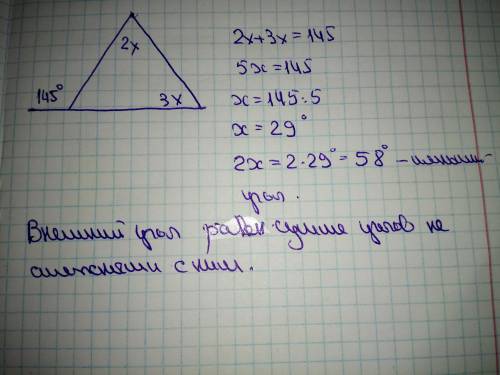 2x
3x
145°
2x+3x=145
5x=145
x=145:5
x=29°
2x=2·29°=58° –
угол.
Внешний угол равен сумме углов не
смежными с ним.